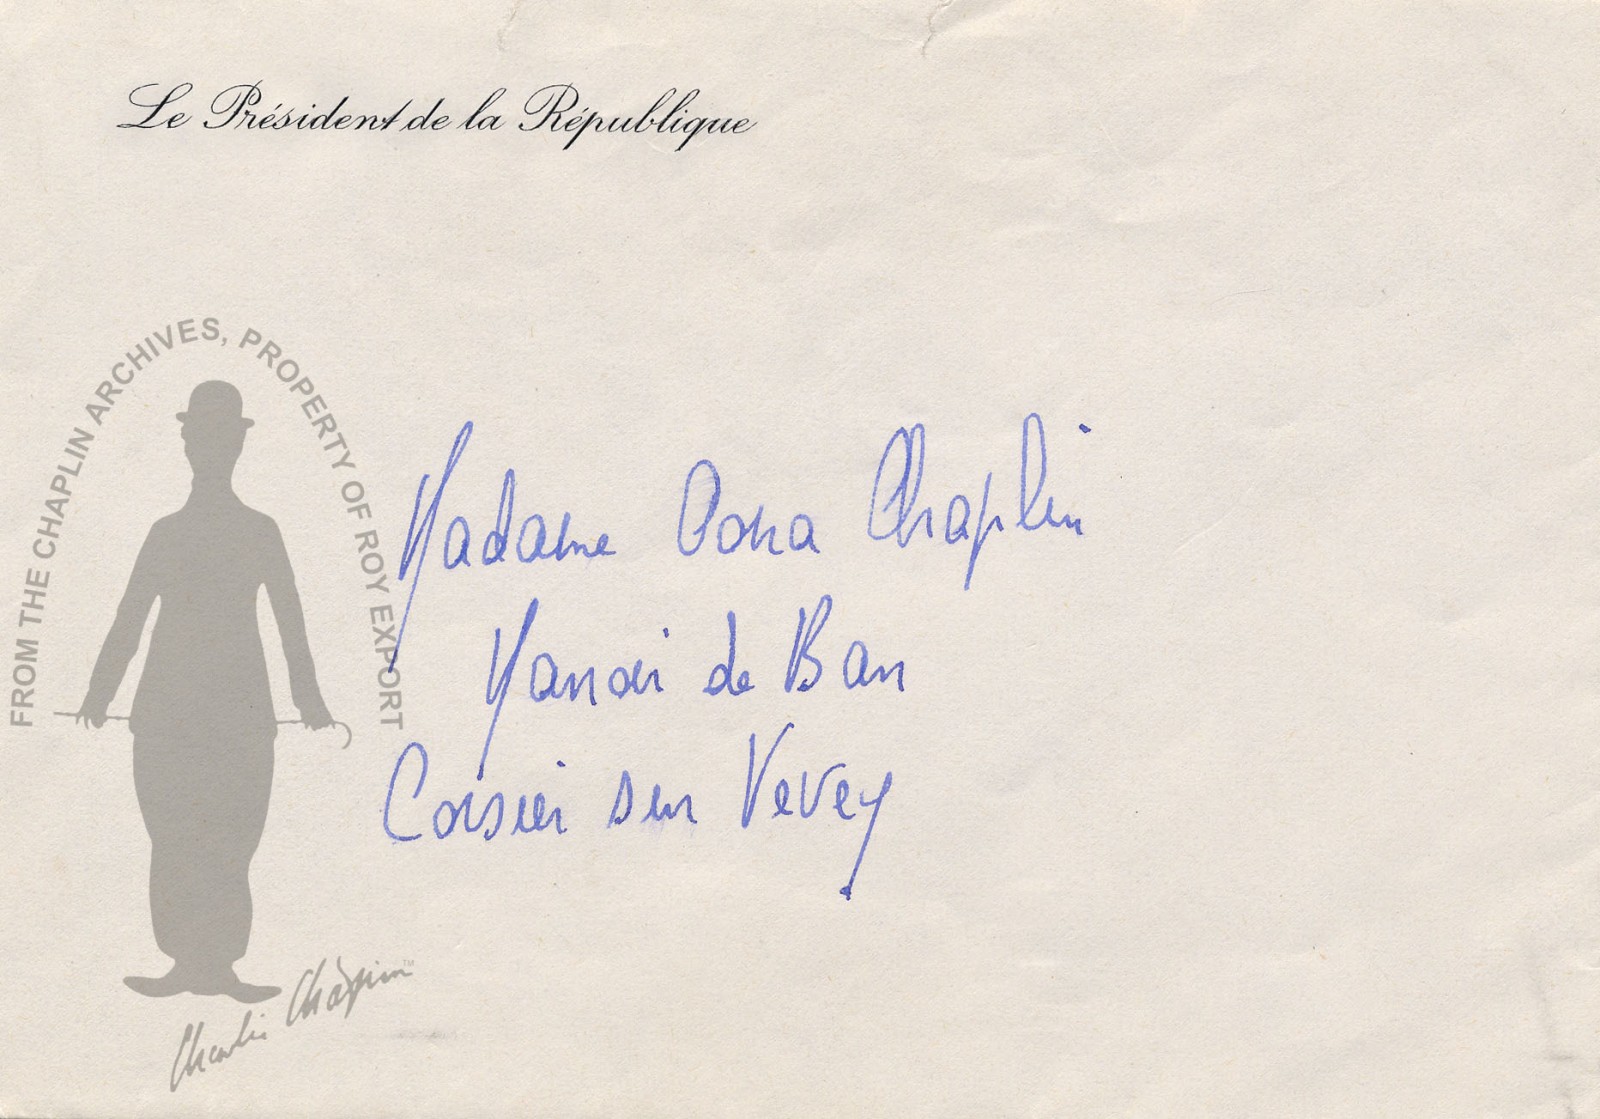 Le Président de la République
FROM THE CHAPLIN ARCHIVES, PROPERTY OF ROY EXPORT
Madame Oona Chaplin
Manoir de Ban
Corsier sur Vevey
Charlie Chaplin™